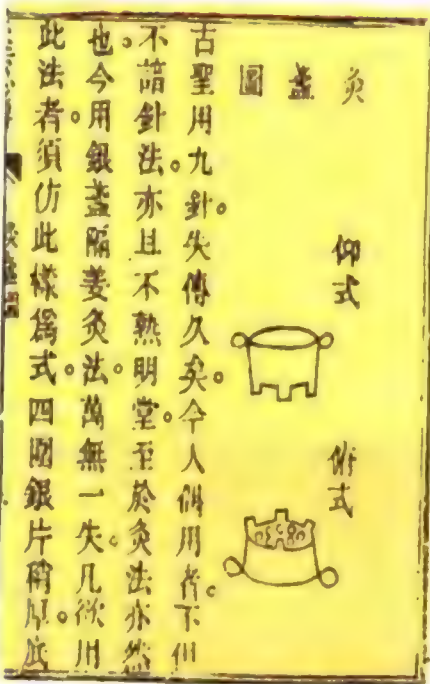 灸盞圖
仰式
俯式
古聖用九針。失傳久矣。今人偶用者。不但
不諳針法。亦且不熟明堂。至於灸法亦然
也。今用銀盞隔姜灸法。萬無一失。凡欲用
此法者。須仿此樣爲式。四圍銀片稍厚。底